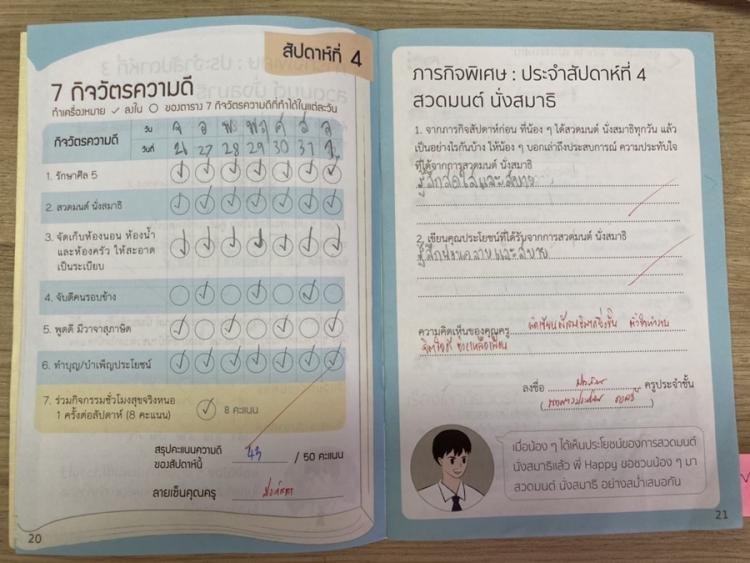 สัปดาห์ที่ 4
7 กิจวัตรความดี
ทำเครื่องหมาย ✓ ลงใน ○ ของตาราง 7 กิจวัตรความดีที่ทำได้ในแต่ละวัน
กิจวัตรความดี วัน จ อ พธ พฤ ศ ส อ
วันที่ 27 28 29 30 31 1
1. รักษาศีล 5
2. สวดมนต์ นั่งสมาธิ
3. จัดเก็บห้องนอน ห้องน้ำ
และห้องครัว ให้สะอาด
เป็นระเบียบ
4. จับดีคนรอบข้าง
5. พูดดี มีวาจาสุภาษิต
6. ทำบุญ/บำเพ็ญประโยชน์
7. ร่วมกิจกรรมชั่วโมงสุขจริงหนอ
1 ครั้งต่อสัปดาห์ (8 คะแนน) ✓ 8 คะแนน
สรุปคะแนนความดี
ของสัปดาห์นี้ 43 / 50 คะแนน
ลายเซ็นคุณครู
20
ภารกิจพิเศษ : ประจำสัปดาห์ที่ 4
สวดมนต์ นั่งสมาธิ
1. จากภารกิจสัปดาห์ก่อน ที่น้อง ๆ ได้สวดมนต์ นั่งสมาธิทุกวัน แล้ว
เป็นอย่างไรกันบ้าง ให้น้อง ๆ บอกเล่าถึงประสบการณ์ ความประทับใจ
ที่ได้จากการสวดมนต์ นั่งสมาธิ
รู้สึกสดใสและสบาย
2. เขียนคุณประโยชน์ที่ได้รับจากการสวดมนต์ นั่งสมาธิ
รู้สึกผ่อนคลายและสบาย
ความคิดเห็นของคุณครู
ลงชื่อ ครูประจำชั้น
เมื่อน้อง ๆ ได้เห็นประโยชน์ของการสวดมนต์
นั่งสมาธิแล้ว พี่ Happy ขอชวนน้อง ๆ มา
สวดมนต์ นั่งสมาธิ อย่างสม่ำเสมอกัน
21